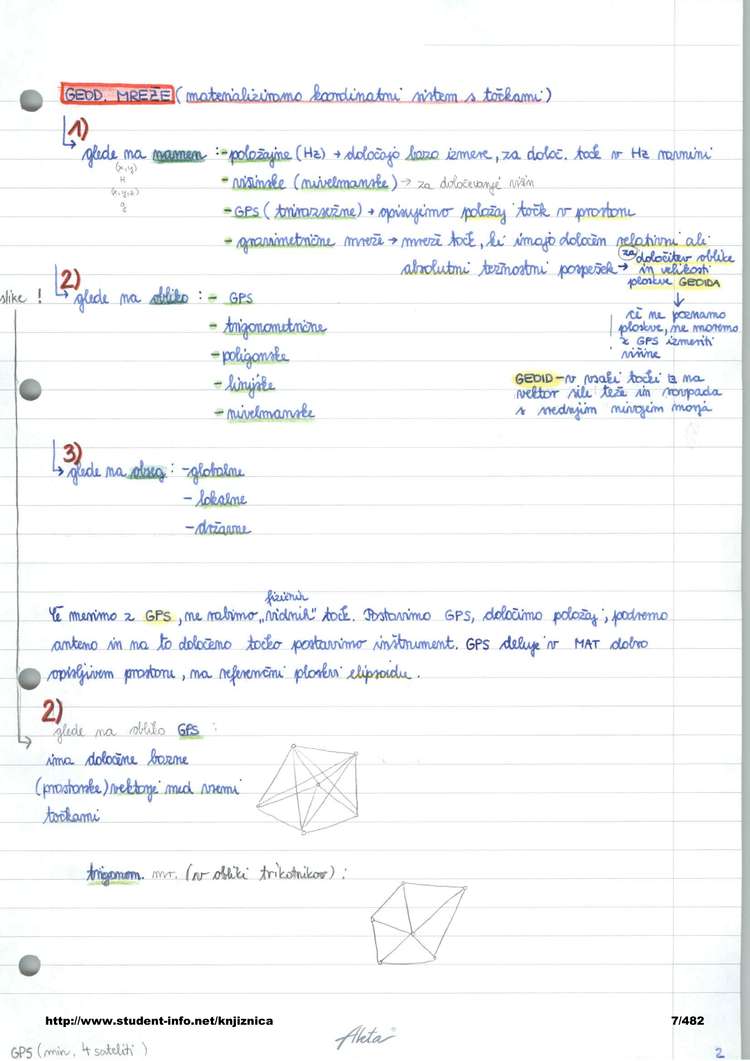 GEOD. MREŽE (materializiramo koordinatni sistem s točkami)
1)
glede na namen : - položajne (Hz) → določajo bazo izmere, za določ. točk v Hz ravnini
(x,y)
H
(x,y,z)
g
- višinske (nivelmanske) → za določevanje višin
- GPS (trirazsežne) → opisujemo položaj točk v prostoru
- gravimetrične mreže → mreže točk, ki imajo določen relativni ali
absolutni težnostni pospešek → za določitev oblike
in velikosti
ploskve GEOIDA
če ne poznamo
ploskve, ne moremo
z GPS izmeriti
višine
slike !
2)
glede na obliko : - GPS
- trigonometrične
- poligonske
- linijske
- nivelmanske
GEOID - v vsaki točki ⊥ na
vektor sile teže in sovpada
s srednjim nivojem morja
3)
glede na obseg : - globalne
- lokalne
- državne
fizičnih
Če merimo z GPS, ne rabimo „vidnih" točk. Postavimo GPS, določimo položaj, podremo
anteno in na to določeno točko postavimo inštrument. GPS deluje v MAT dobro
opisljivem prostoru, na referenčni ploskvi elipsoidu.
2)
glede na obliko GPS :
ima določene bazne
(prostorske) vektorje med vsemi
točkami
trigonom. mr. (v obliki trikotnikov) :
http://www.student-info.net/knjiznica
7/482
GPS (min. 4 sateliti)
Akta
2